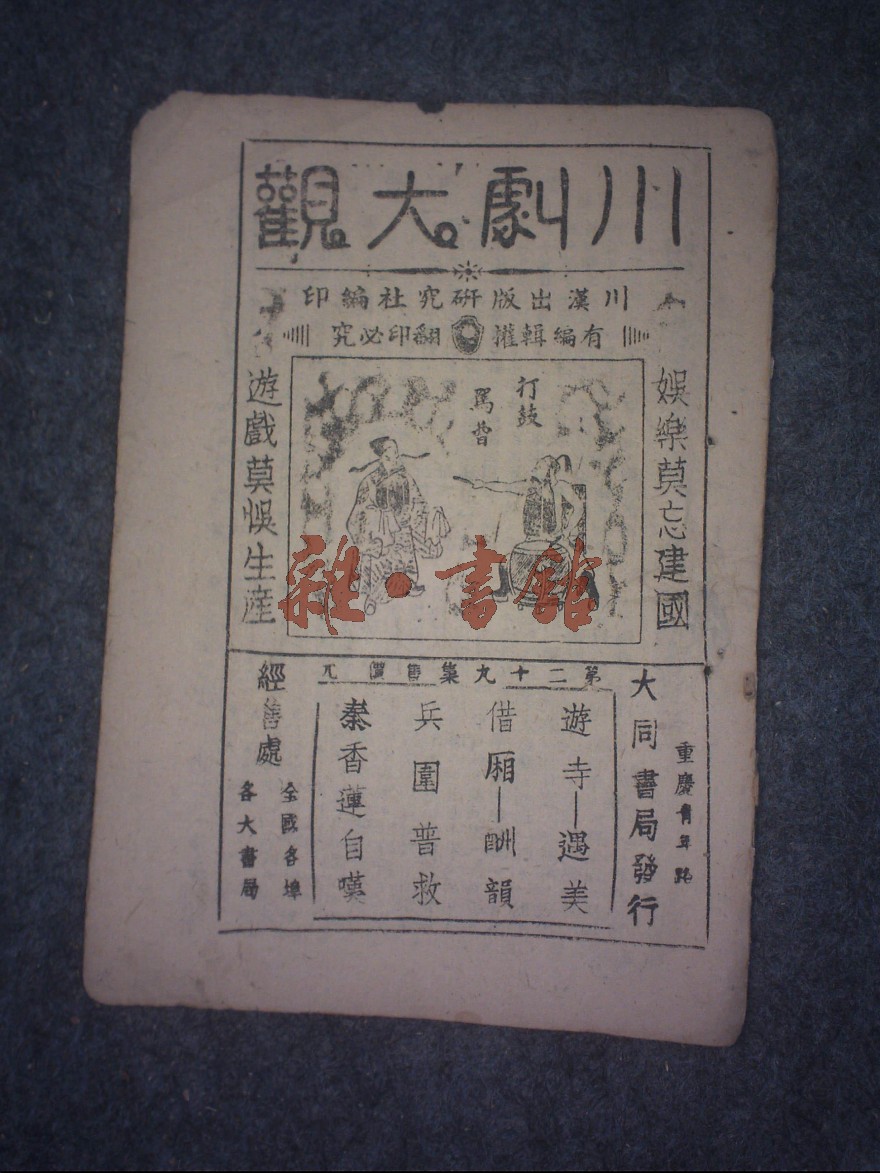 川劇大觀
川漢出版研究社編印
有編輯權 翻印必究
娛樂莫忘建國
打鼓
罵曹
遊戲莫悞生產
第二十九集售價 元
重慶青年路
大同書局發行
遊寺—遇美
借厢—酬韻
兵圍普救
秦香蓮自嘆
經售處
全國各埠
各大書局
雜·書館